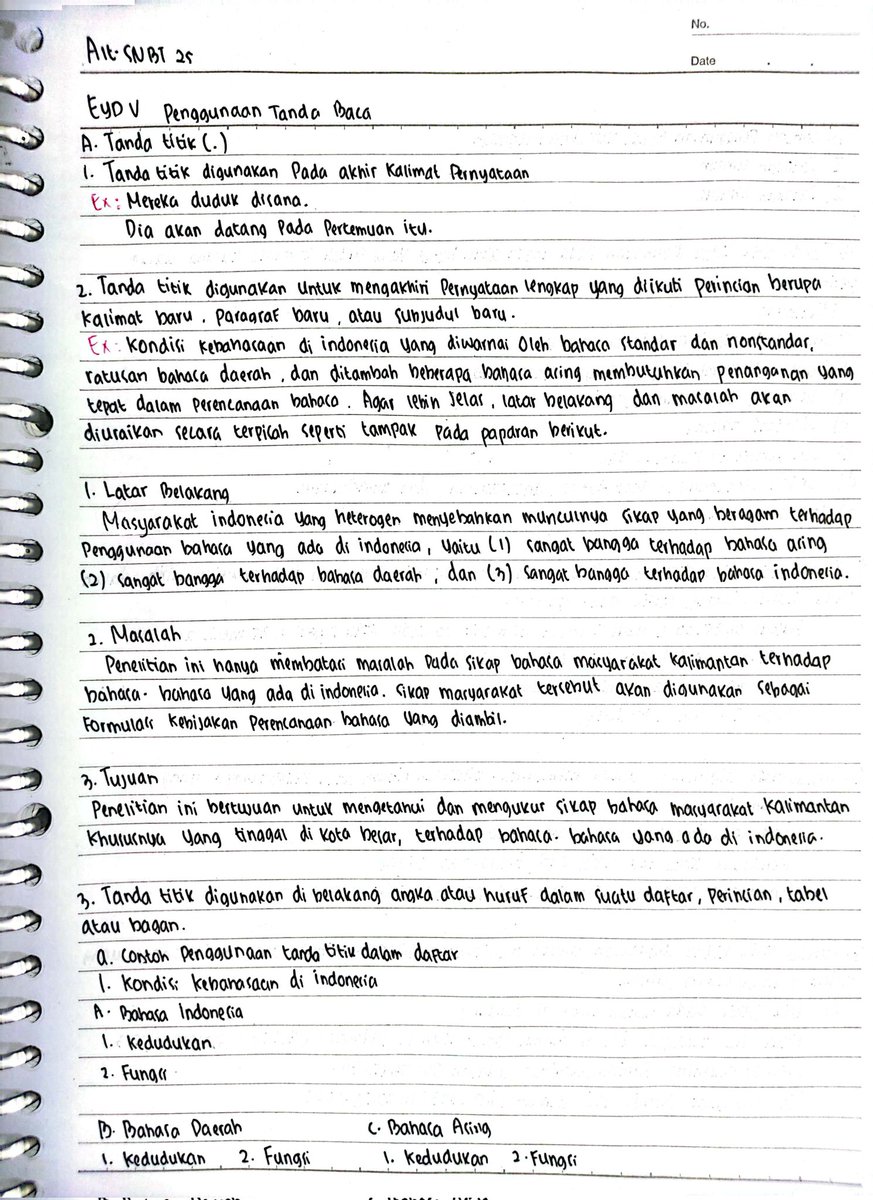 No.
Alt-SNBT 25
Date . .
EYD V Penggunaan Tanda Baca
A. Tanda titik (.)
1. Tanda titik digunakan Pada akhir Kalimat Pernyataan
Ex: Mereka duduk disana.
Dia akan datang Pada Pertemuan itu.
2. Tanda titik digunakan untuk mengakhiri Pernyataan lengkap yang diikuti Perincian berupa
Kalimat baru, Paragraf baru, atau Subjudul baru.
Ex: Kondisi Kebahasaan di indonesia yang diwarnai Oleh bahasa standar dan nonstandar,
ratusan bahasa daerah, dan ditambah beberapa bahasa asing membutuhkan penanganan yang
tepat dalam Perencanaan bahasa. Agar lebih Jelas, latar belakang dan masalah akan
diuraikan secara terpisah seperti tampak pada paparan berikut.
1. Latar Belakang
Masyarakat indonesia yang heterogen menyebabkan munculnya sikap yang beragam terhadap
Penggunaan bahasa yang ada di indonesia, yaitu (1) sangat bangga terhadap bahasa asing
(2) sangat bangga terhadap bahasa daerah ; dan (3) sangat bangga terhadap bahasa indonesia.
2. Masalah
Penelitian ini hanya membatasi masalah pada sikap bahasa masyarakat Kalimantan terhadap
bahasa-bahasa yang ada di indonesia. Sikap masyarakat tersebut akan digunakan sebagai
Formulasi Kebijakan Perencanaan bahasa yang diambil.
3. Tujuan
Penelitian ini bertujuan untuk mengetahui dan mengukur sikap bahasa masyarakat Kalimantan
Khususnya yang tinggal di Kota besar, terhadap bahasa-bahasa yang ada di indonesia.
3. Tanda titik digunakan di belakang angka atau huruf dalam suatu daftar, Perincian, tabel
atau bagan.
a. Contoh Penggunaan tanda titik dalam daftar
1. Kondisi Kebahasaan di indonesia
A. Bahasa Indonesia
1. Kedudukan
2. Fungsi
B. Bahasa Daerah C. Bahasa Asing
1. Kedudukan 2. Fungsi 1. Kedudukan 2. Fungsi